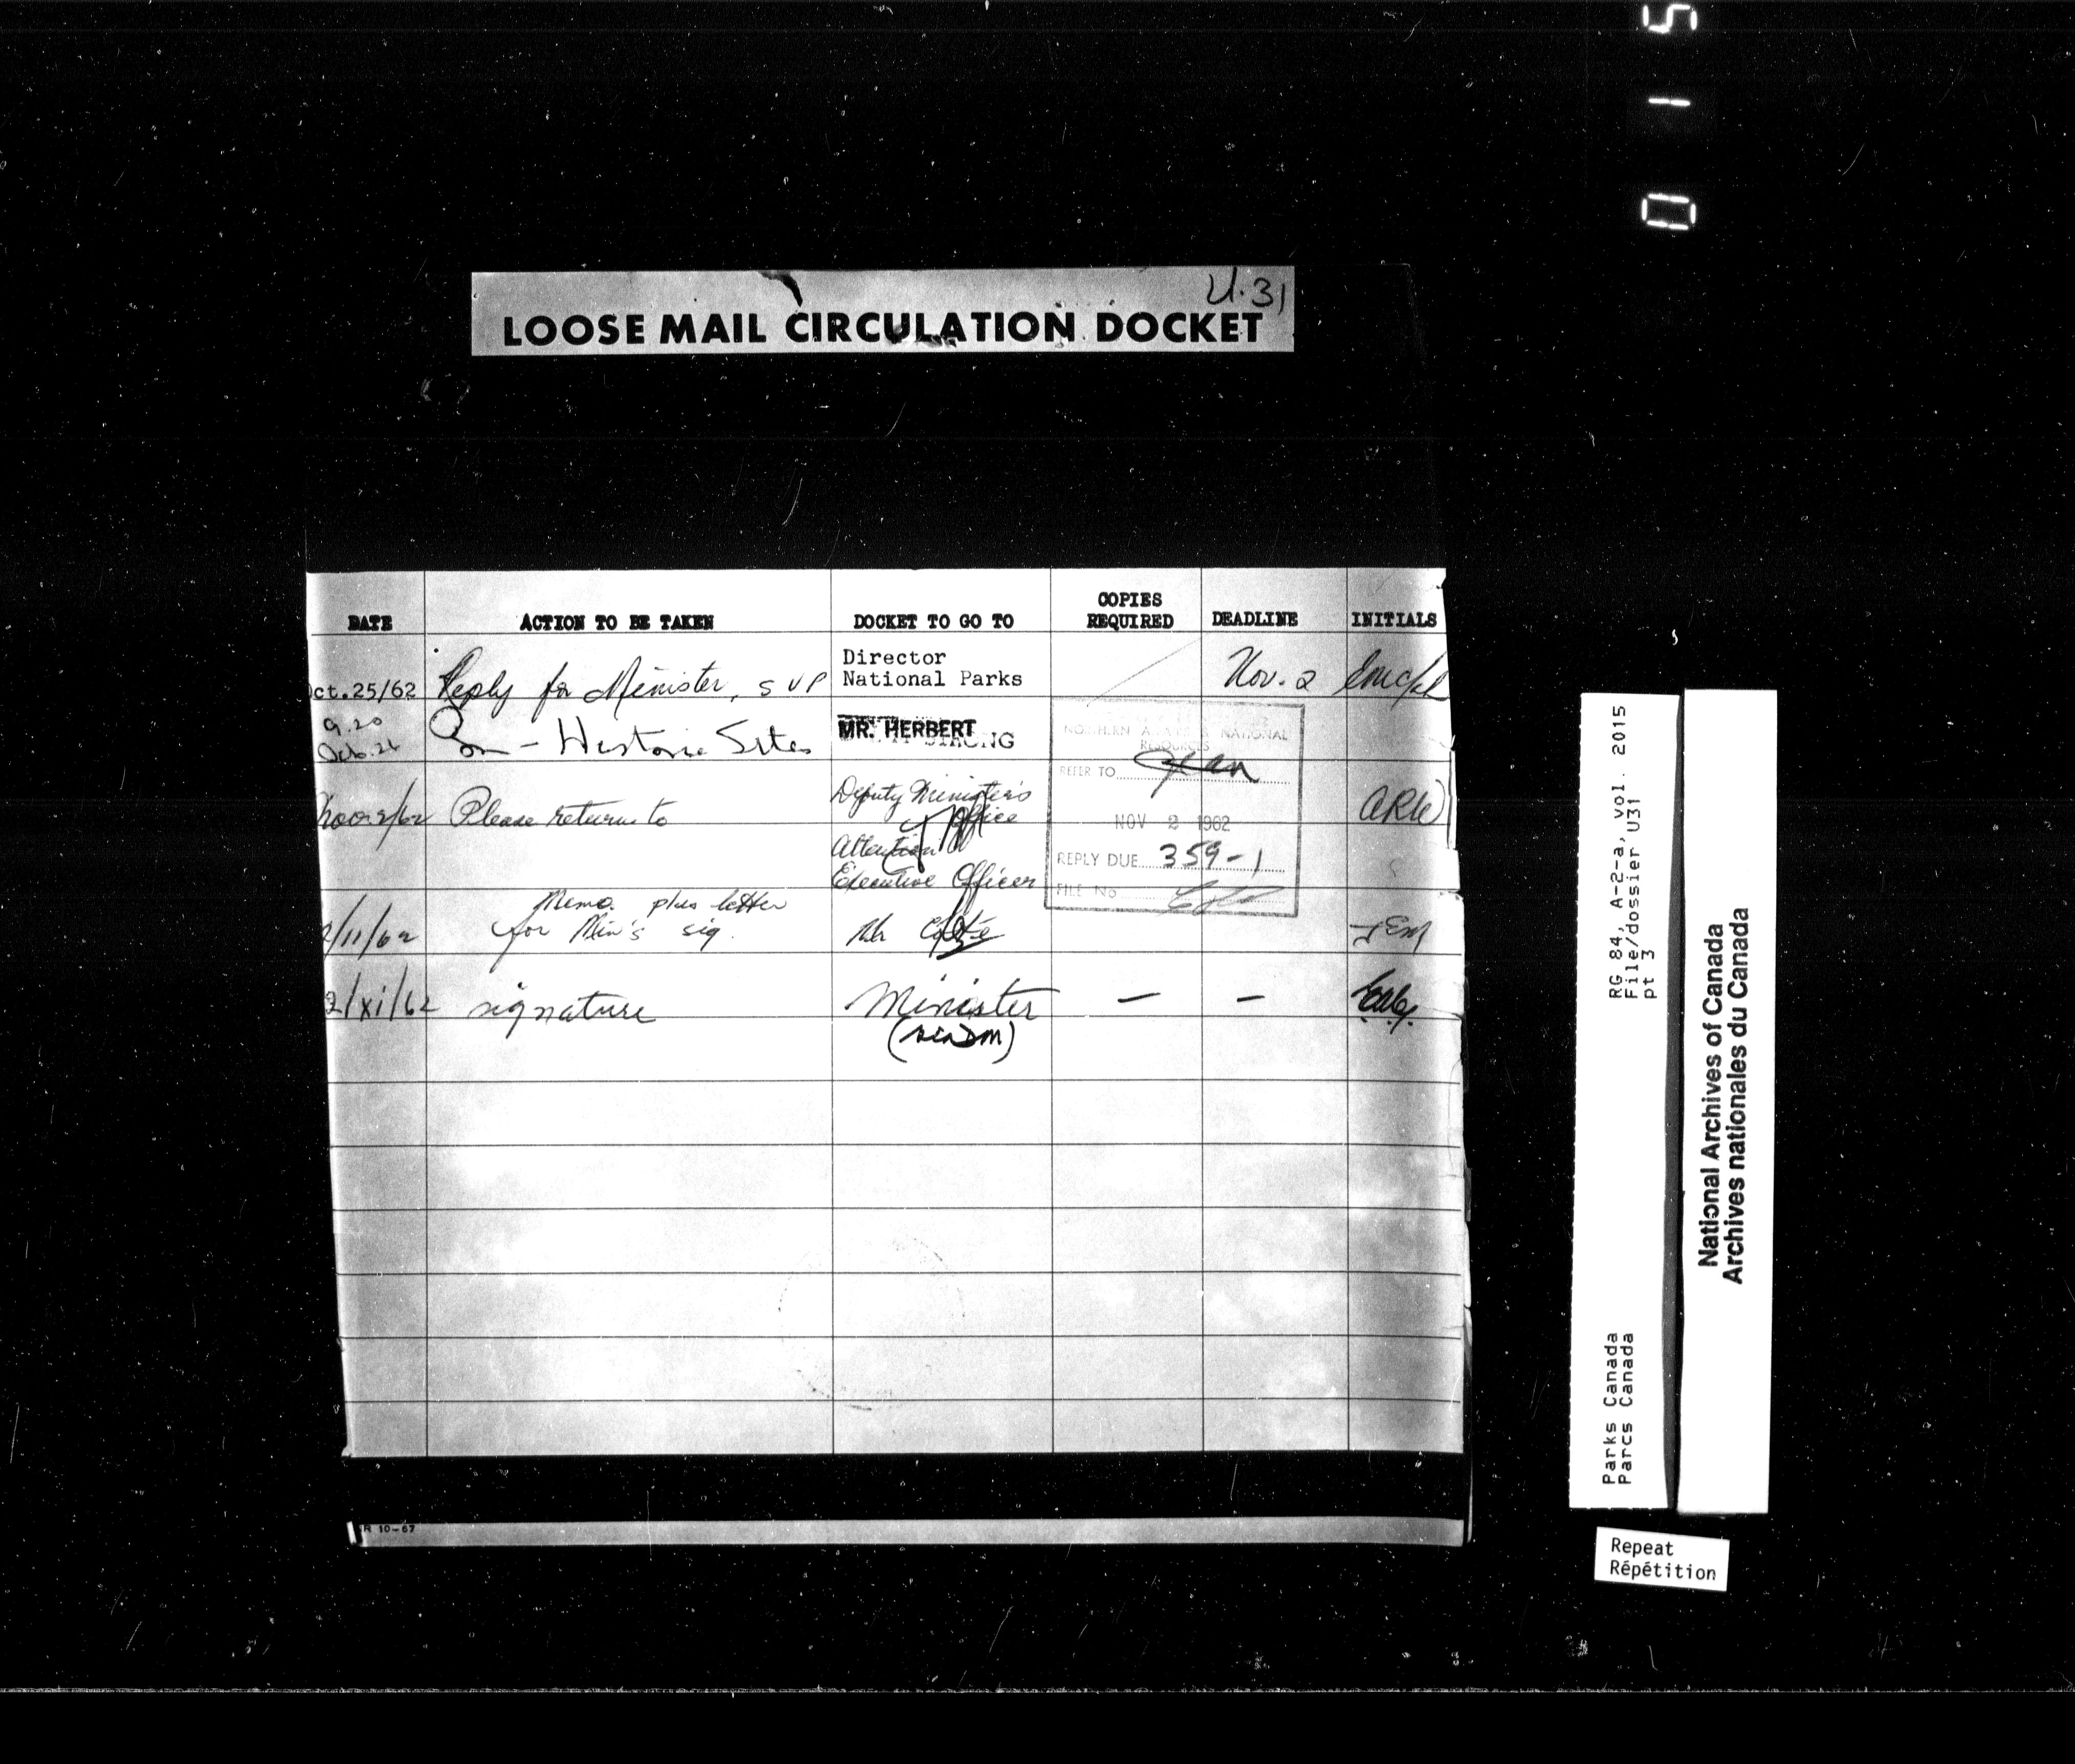 0 1 5
U.31
LOOSE MAIL CIRCULATION DOCKET
DATE ACTION TO BE TAKEN DOCKET TO GO TO COPIES REQUIRED DEADLINE INITIALS
ct.25/62 Reply for Minister, SVP Director National Parks Nov. 2
9.20
Oct. 26 - Historic Sites MR. HERBERT
NORTHERN AFFAIRS & NATIONAL
RESOURCES
REFER TO
NOV 2 1962
REPLY DUE 359-1
FILE No
Nov. 2/62 Please return to Deputy Minister's Office ARW
Attention
Executive Officer
2/11/62 Memo. plus letter
for Min's sig. Mr Côté JEM
2/xi/62 signature Minister — —
(via DM)
R 10-67
RG 84, A-2-a, vol. 2015
File/dossier U31
pt 3
Parks Canada
Parcs Canada
National Archives of Canada
Archives nationales du Canada
Repeat
Répétition